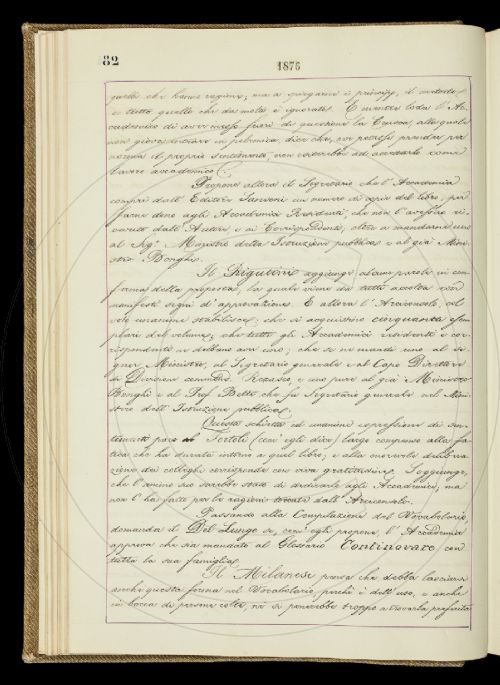 82
1876
quelli che hanno ragione; ma a spiegarne i principj, il metodo
e tutto quello che da molti è ignorato. E mentre loda l'Ac-
cademico di aver messo fuori di questione la Crusca, alla quale
non giova entrare in polemica, dice che, per poterlo prender per
norma il proprio sentimento, non esiterebbe ad accettarlo come
lavoro accademico.
Propone altresì il Segretario che l'Accademia
compri dall'Editor Sansoni un numero di copie del libro, per
farne dono agli Accademici Residenti, che non l'avessero ri-
cevuto dall'Autore, e ai Corrispondenti, oltre a mandarne uno
al Sig. Ministro della Istruzione pubblica e al già Mini-
stro Bonghi.
Il Rigutini aggiunge alcune parole in con-
ferma della proposta, la quale viene da tutti accolta con
manifesti segni di approvazione. E altresì l'Arciconsolo, al
voto unanime stabilisce, che si acquistino cinquanta esem-
plari del volume; che tutti gli Accademici residenti e cor-
rispondenti ne debbano aver uno; che se ne mandi uno al si-
gnor Ministro, al Segretario generale e al Capo Direttore
di Divisione Rezasco, e uno pure al già Ministro
Bonghi e al Prof. Betti che fu Segretario generale nel Mini-
stero dell'Istruzione pubblica.
Questo schietto ed unanime espressione di sen-
timenti pare al Tortoli (com'egli dice) largo compenso alla fa-
tica che ha durato intorno a quel libro; e alla onorevole delibera-
zione dei colleghi corrisponde con viva gratitudine. Soggiunge,
che l'animo suo sarebbe stato di dedicarlo agli Accademici, ma
non l'ha fatto per le ragioni toccate dall'Arciconsolo.
Passando alla Compilazione del Vocabolario,
domanda il Del Lungo se, com'egli propone, l'Accademia
approva che sia mandato al Glossario Continovare, con
tutta la sua famiglia.
Il Milanesi pensa che debba lasciarsi
anche questa forma nel Vocabolario, perchè è dell'uso, e anche
in bocca di persone colte, nè si penerebbe troppo a trovarla preferita